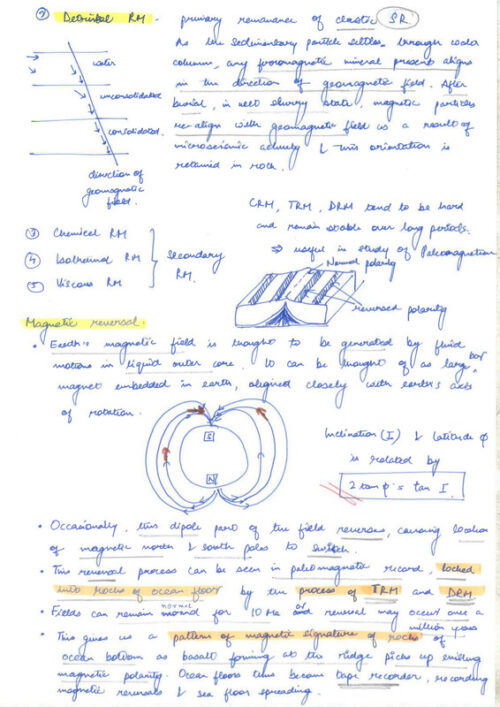 ② Detrital RM - primary remanance of clastic SR
As the sedimentary particle settles through water
column, any ferromagnetic mineral present aligns
in the direction of geomagnetic field. After
burial, in wet slurry state, magnetic particles
re-align with geomagnetic field as a result of
microseismic activity & this orientation is
retained in rock.
water
unconsolidated
consolidated.
direction of
geomagnetic
field.
CRM, TRM, DRM tend to be hard
and remain stable over long periods.
⇒ useful in study of Paleomagnetism
③ Chemical RM
④ Isothermal RM
⑤ Viscous RM
Secondary
RM.
Normal polarity
reversed polarity
Magnetic reversal.
• Earth's magnetic field is thought to be generated by fluid
motions in liquid outer core. It can be thought of as large bar
magnet embedded in earth, aligned closely with earth's axis
of rotation.
S
N
Inclination (I) & latitude φ
is related by
2 tan φ = tan I.
• Occasionally, this dipole part of the field reverses, causing location
of magnetic north & south poles to switch.
• This reversal process can be seen in paleomagnetic record, locked
into rocks of ocean floor by the process of TRM and DRM.
• Fields can remain normal for 10 Ma or reversal may occur once a
normal
million years
• This gives us a pattern of magnetic signature of rocks of
ocean bottom as basalt forming at the ridge picks up existing
magnetic polarity. Ocean floors thus become tape recorder, recording
magnetic reversals & sea floor spreading.